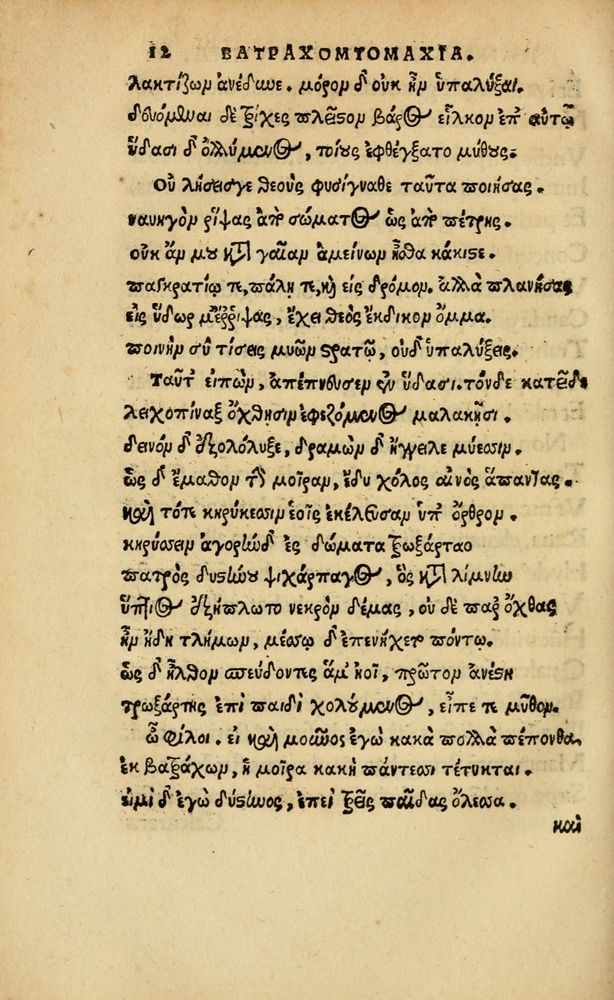 12 ΒΑΤΡΑΧΟΜΥΟΜΑΧΙΑ.
λακτίζων ἀνέδυνε. μόρον δ' οὐκ ἦν ὑπαλύξαι.
δευόμεναι δὲ τρίχες πλεῖστον βάρος εἷλκον ἐπ' αὐτῷ
ὕδασι δ' ὀλλύμενος, τοίους ἐφθέγξατο μύθους.
Οὐ λήσεις γε θεοὺς φυσίγναθε ταῦτα ποιήσας.
ναυηγὸν ῥίψας ἀπὸ σώματος ὡς ἀπὸ πέτρης.
οὐκ ἄν μου κατὰ γαῖαν ἀμείνων ἦσθα κάκιστε.
παγκρατίῳ τε, πάλῃ τε, καὶ εἰς δρόμον. ἀλλὰ πλανήσας
εἰς ὕδωρ μ' ἔῤῥιψας, ἔχει θεὸς ἔκδικον ὄμμα.
ποινὴν σὺ τίσεις μυῶν στρατῷ, οὐδ' ὑπαλύξεις.
Ταῦτ' εἰπὼν, ἀπέπνευσεν ἐν ὕδασι. τόνδε κατεῖδε
λειχοπίναξ ὄχθῃσιν ἐφεζόμενος μαλακῇσι.
δεινὸν δ' ἐξολόλυξε, δραμὼν δ' ἤγγειλε μύεσσιν.
ὡς δ' ἔμαθον τὴν μοῖραν, ἔδυ χόλος αἰνὸς ἅπαντας.
καὶ τότε κηρύκεσσιν ἑοῖς ἐκέλευσαν ὑπ' ὄρθρον.
κηρύσσειν ἀγορὴν δ' ἐς δώματα τρωξάρταο
πατρὸς δυστήνου ψιχάρπαγος, ὃς κατὰ λίμνην
ὕπτιος ἐξήπλωτο νεκρὸν δέμας, οὐ δὲ παρ' ὄχθας
ἦν ἤδη τλήμων, μέσσῳ δ' ἐπενήχετο πόντῳ.
ὡς δ' ἦλθον σπεύδοντες ἅμ' ἠοῖ, πρῶτον ἀνέστη
τρωξάρτης ἐπὶ παιδὶ χολούμενος, εἶπέ τε μῦθον.
ὦ φίλοι. εἰ καὶ μοῦνος ἐγὼ κακὰ πολλὰ πέπονθα,
ἐκ βατράχων, ἡ μοῖρα κακὴ πάντεσσι τέτυκται.
εἰμὶ δ' ἐγὼ δύστηνος, ἐπεὶ τρεῖς παῖδας ὄλεσσα.
καὶ